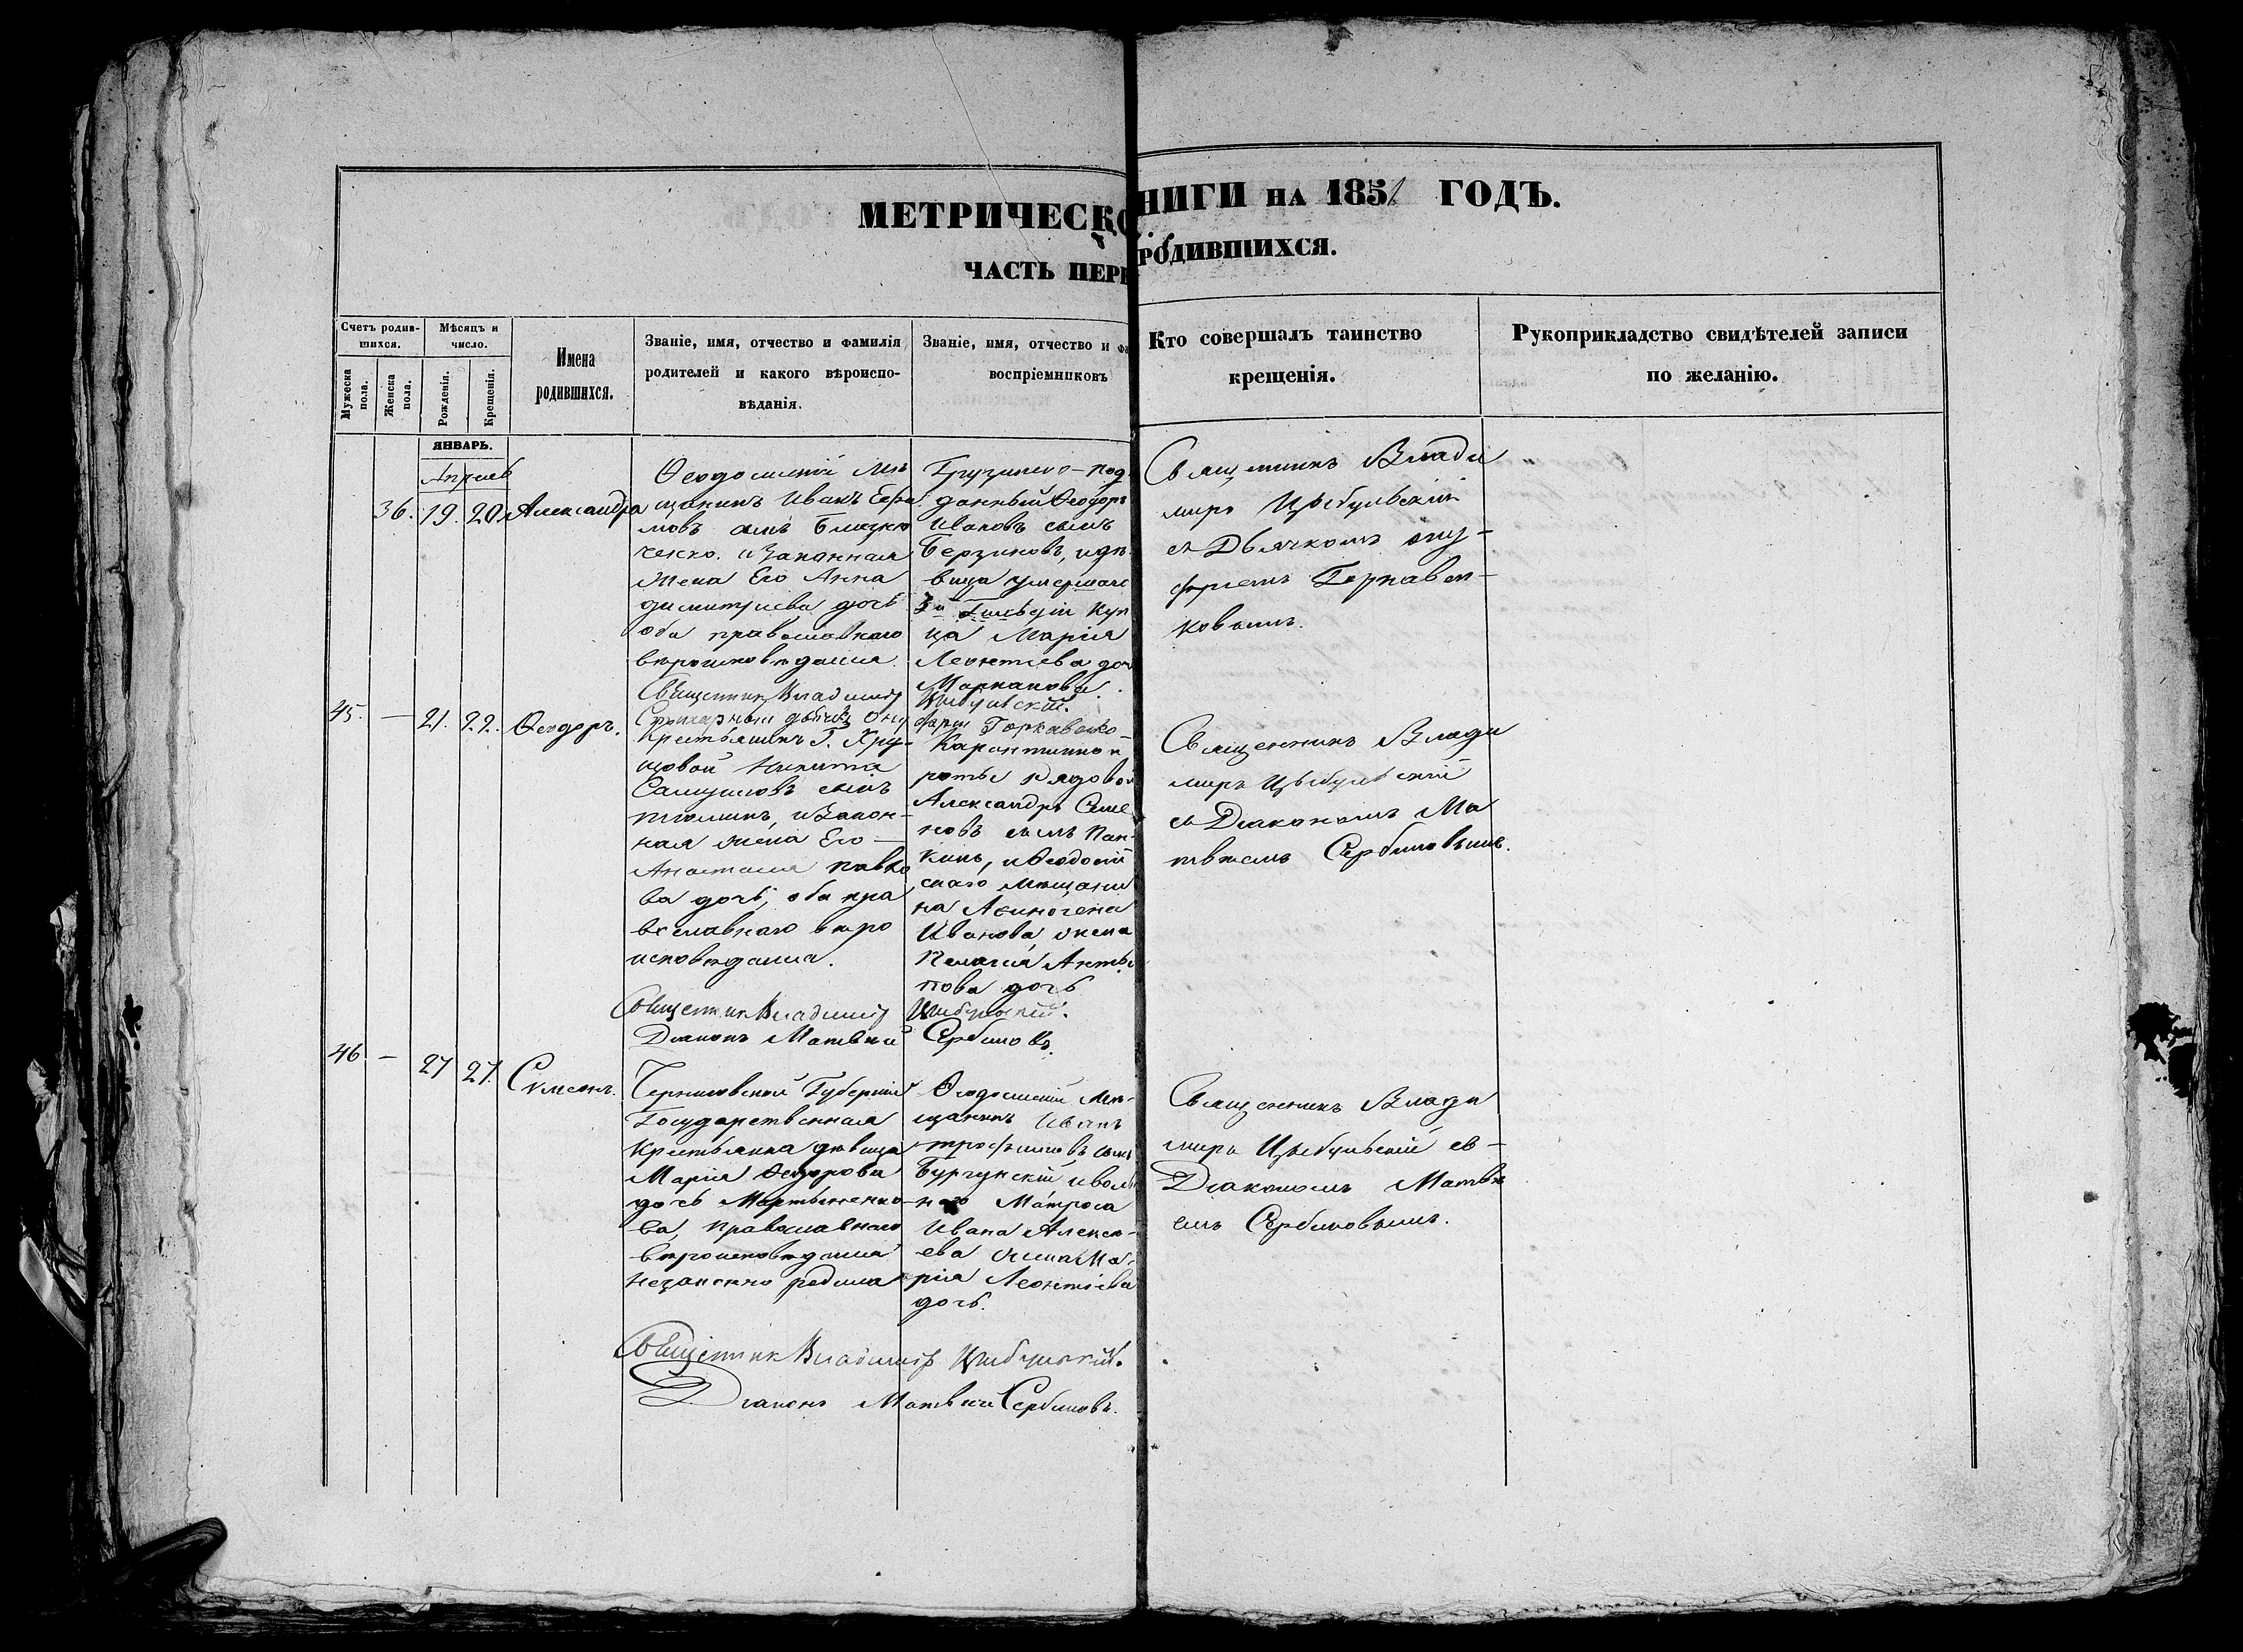 МЕТРИЧЕСКО
НИГИ НА 1851 ГОДЪ.
ЧАСТЬ ПЕРВ
РОДИВШИХСЯ.
Счетъ родив-
шихся.
Мужеска
пола.
Женска
пола.
Мѣсяцъ и
число.
Рожденія.
Крещенія.
Имена
родившихся.
Званіе, имя, отчество и фамилія
родителей и какого вѣроиспо-
вѣданія.
Званіе, имя, отчество и фа
воспріемниковъ
Кто совершалъ таинство
крещенія.
Рукоприкладство свидѣтелей записи
по желанію.
ЯНВАРЬ.
Апрель
36. 19. 20. Александра
Ѳеодосійскій мѣ
щанинъ Иванъ Ефи
мовъ сынъ
и Законная
жена Его Анна
Димитріева дочь
оба православнаго
вѣроисповѣданія.
Грузинско-под
данный Ѳеодоръ
Ивановъ сынъ
Берзиновъ, и дѣ
вица умершаго
3й Гильдіи куп
ца Марія
Леонтіева до
Марканова.
Священникъ Влади
миръ Цыбульскій
съ Дьячкомъ Ону-
фріемъ Горкавен-
ковымъ.
Священникъ Владиміръ Цыбульскій.
дьячекъ Ону фрій Горкавенко
45. — 21. 22. Ѳеодоръ.
Крестьянинъ Г. Хру-
щовой Никита
Самуиловъ сынъ
и Закон-
ная жена Его —
Анастасія Павло
ва дочь, оба пра
вославнаго вѣро
исповѣданія.
Карантинной
роты рядовой
Александръ Семе
новъ сынъ Пан-
кинъ, и Ѳеодосій
скаго мѣщани
на Аѳиногена
Иванова жена
Пелагія Анти
пова дочь
Священникъ Влади
миръ Цыбульскій
съ Діакономъ Ма
твѣемъ Сербиновымъ.
Священникъ Владиміръ Цыбульскій.
Діаконъ Матвѣй Сербиновъ.
46 — 27 27. Симеонъ.
Черниговской Губерніи
Государственная
крестьянка дѣвица
Марія Ѳедорова
дочь Мартыненко-
ва, православнаго
вѣроисповѣданія
незаконно родила
Ѳеодосійскій мѣ-
щанинъ Иванъ
Трофимовъ сынъ
Бургунскій и воль
наго Матроса
Ивана Алексѣ-
ева жена Ма-
рія Леонтіева
дочь.
Священникъ Влади
миръ Цыбульскій съ —
Діакономъ Матвѣ
емъ Сербиновымъ.
Священникъ Владиміръ Цыбульскій.
Діаконъ Матвѣй Сербиновъ.